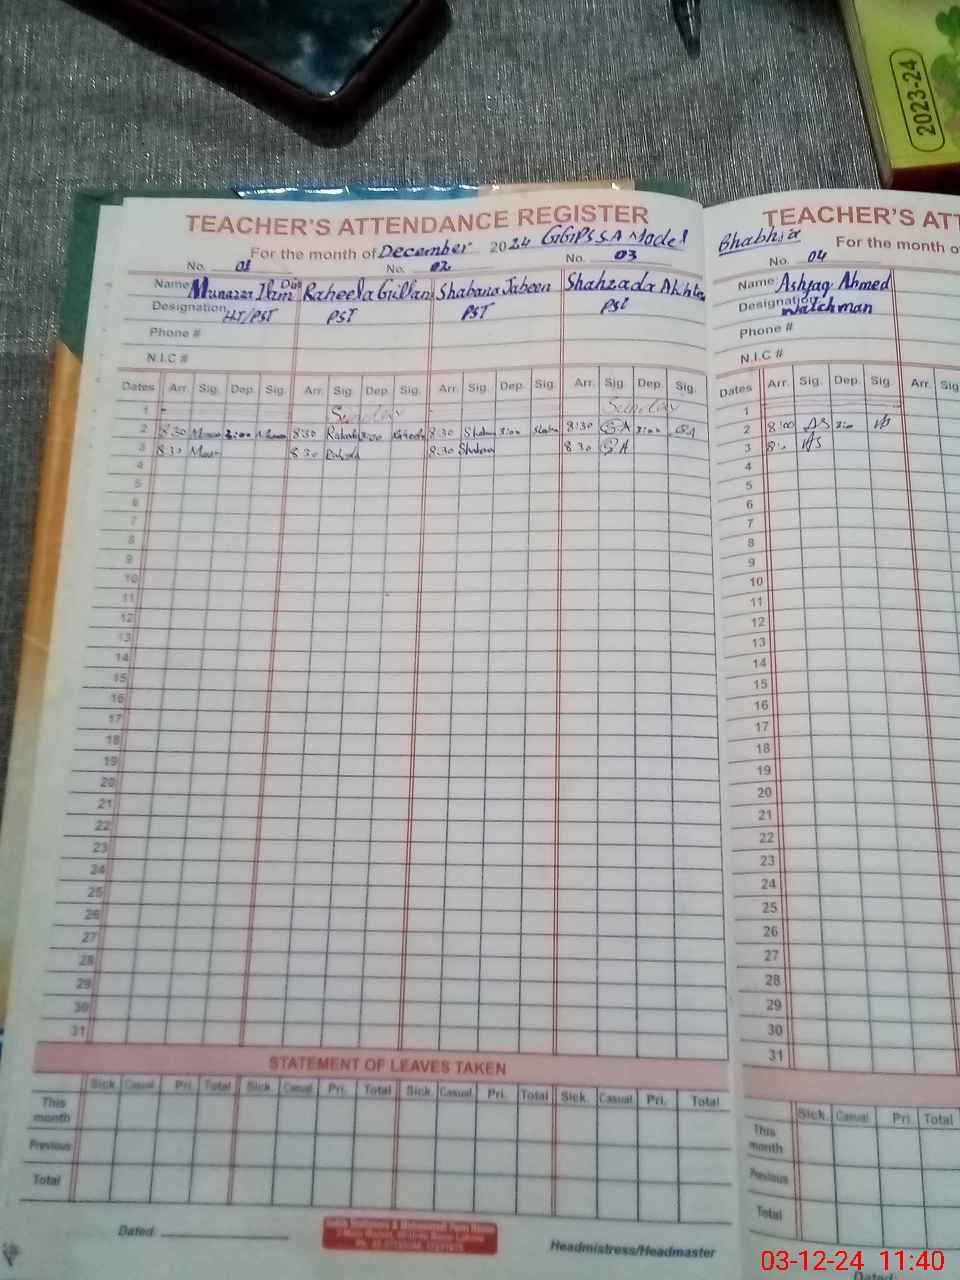 2023-24
TEACHER'S ATTENDANCE REGISTER
For the month of December 2024 GGPS S.A Model
No. 01 No. 02 No. 03
Name Munazza Din Raheela Gillani Shabana Jabeen Shahzada Akhtar
Designation HT/PST PST PST PST
Phone #
N.I.C #
Dates Arr. Sig. Dep. Sig. Arr. Sig. Dep. Sig. Arr. Sig. Dep. Sig. Arr. Sig. Dep. Sig.
1 Sunday Sunday
2 8:30 3:00 8:30 3:00 8:30 3:00 8:30 SA 3:00 SA
3 8:30 8:30 8:30 8:30 SA
4
5
6
7
8
9
10
11
12
13
14
15
16
17
18
19
20
21
22
23
24
25
26
27
28
29
30
31
STATEMENT OF LEAVES TAKEN
Sick. Casual. Pri. Total Sick. Casual. Pri. Total Sick. Casual. Pri. Total Sick. Casual. Pri. Total
This month
Previous
Total
Dated
Headmistress/Headmaster
TEACHER'S ATT
Bhabhra For the month o
No. 04
Name Ashfaq Ahmed
Designation Watchman
Phone #
N.I.C #
Dates Arr. Sig. Dep. Sig. Arr. Sig
1
2 8:00 AS 3:00
3 8: AS
4
5
6
7
8
9
10
11
12
13
14
15
16
17
18
19
20
21
22
23
24
25
26
27
28
29
30
31
Sick. Casual. Pri. Total
This month
Previous
Total
Dated
03-12-24 11:40